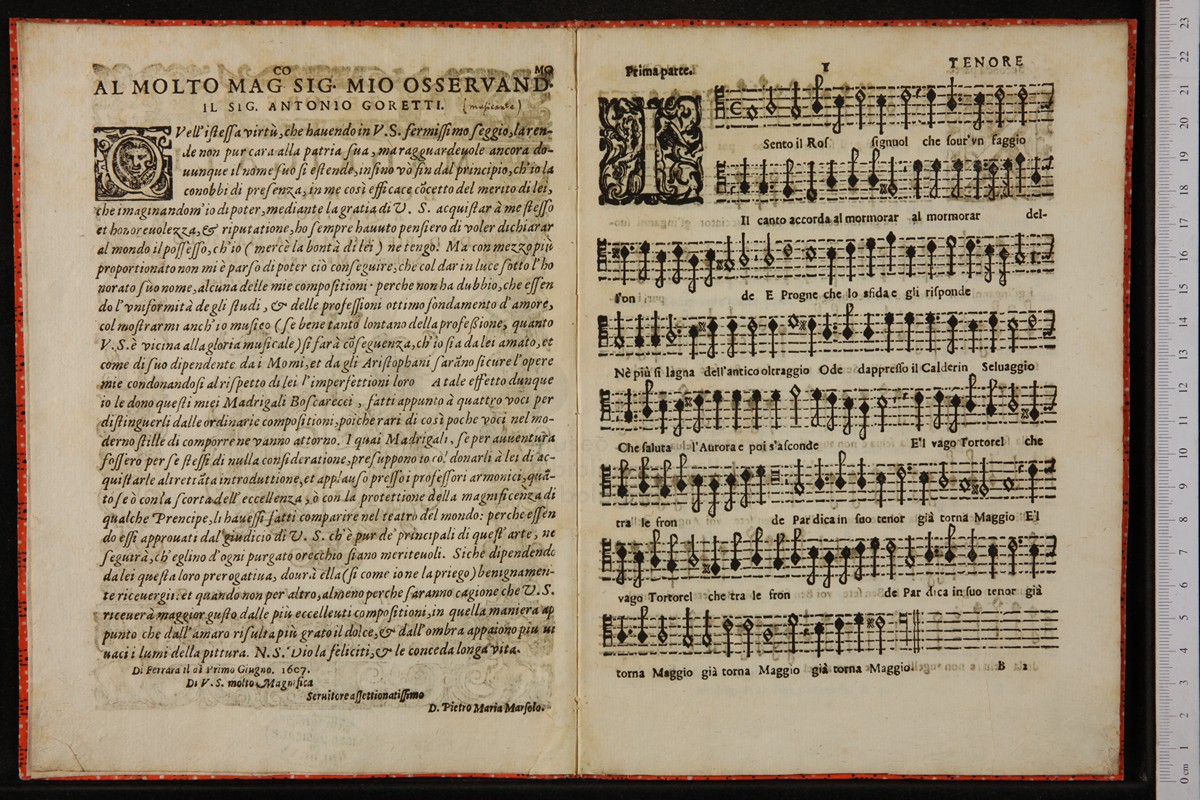 AL MOLTO MAG.CO SIG. MIO OSSERVAND.MO
IL SIG. ANTONIO GORETTI. (musicante)
QVell'istessa virtù, che hauendo in V. S. fermissimo seggio, la ren-
de non pur cara alla patria sua, ma ragguardeuole ancora do-
uunque il nome suo si estende, insino vò sin dal principio, ch'io la
conobbi di presenza, in me così efficace cōcetto del merito di lei,
che imaginandom'io di poter, mediante la gratia di V. S. acquistar à me stesso
et honoreuolezza, & riputatione, ho sempre hauuto pensiero di voler dichiarar
al mondo il possesso, ch'io (mercè la bontà di lei) ne tengo. Ma con mezzo più
proportionato non mi è parso di poter ciò conseguire, che col dar in luce sotto l'ho
norato suo nome, alcuna delle mie compositioni· perche non ha dubbio, che essen
do l'vniformità de gli studi, & delle professioni ottimo fondamento d'amore,
col mostrarmi anch'io musico (se bene tanto lontano della professione, quanto
V. S. è vicina alla gloria musicale) si farà cōseguenza, ch'io sia da lei amato, et
come di suo dipendente da i Momi, et da gli Aristophani sarāno sicure l'opere
mie condonandosi al rispetto di lei l'imperfettioni loro A tale effetto dunque
io le dono questi miei Madrigali Boscarecci, fatti appunto à quattro voci per
distinguerli dalle ordinarie compositioni, poiche rari di così poche voci nel mo-
derno stille di comporre ne vanno attorno. I quai Madrigali, se per auuentura
fossero per se stessi di nulla consideratione, presuppono io co'l donarli à lei di ac-
quistarle altrettāta introduttione, et applauso presso i professori armonici, quā-
to se ò con la scorta dell'eccellenza, ò con la protettione della magnificenza di
qualche Prencipe, li hauessi fatti comparire nel teatro del mondo: perche essen
do essi approuati dal giudicio di V. S. ch'è pur de' principali di quest'arte, ne
seguirà, ch'eglino d'ogni purgato orecchio siano meriteuoli. Siche dipendendo
da lei questa loro prerogatiua, dourà ella (si come io ne la priego) benignamen-
te riceuergli. et quando non per altro, almeno perche saranno cagione che V. S.
riceuerà maggior gusto dalle più eccelleuti compositioni, in quella maniera ap
punto che dall'amaro risulta più grato il dolce, & dall'ombra appaiono più ui
uaci i lumi della pittura. N. S. Dio la feliciti, & le conceda longa vita.
Di Ferrara il dì Primo Giugno. 1607.
Di V. S. molto Magnifica
Seruitore affettionatissimo
D. Pietro Maria Marsolo.
Prima parte. 1 TENORE
Sento il Ros signuol che sour'vn faggio
Il canto accorda al mormorar al mormorar del-
l'on de E Progne che lo sfida e gli risponde
Nè più si lagna dell'antico oltraggio Ode dappresso il Calderin Seluaggio
Che saluta l'Aurora e poi s'asconde E'l vago Tortorel che
tra le fron de Par dica in suo tenor già torna Maggio E'l
vago Tortorel che tra le fron de Par dica in suo tenor già
torna Maggio già torna Maggio già torna Maggio. B 2